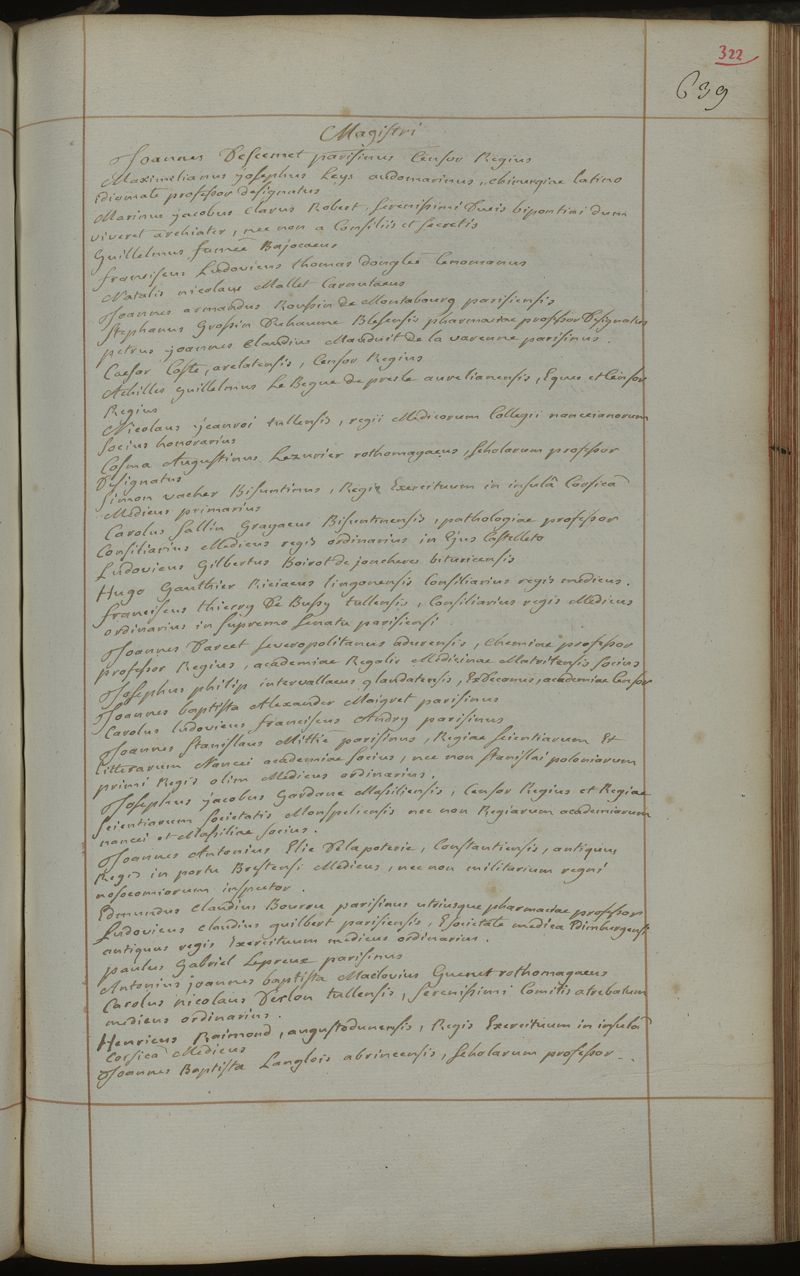 322
639
Magistri
Joannes Descemet parisinus Censor Regius
Maximilianus josephus Leys audomarinus, chirurgiae latino
idiomate professor designatus
Marinus jacobus Clarus Robert, serenissimi Ducis bipontini dum
viveret archiater, nec non a Consiliis et secretis
Guillelmus fumée Bajocaeus
franciscus Ludovicus thomas donglée Cenomanus
Natalis nicolaus Mallet Carnutaeus
Joannes armandus Roussin de Montabourg parisiensis
Stephanus Grossin Duhaume Blesensis pharmaciae professor Designatus
petrus joannes Claudius Mauduit de la varenne parisinus.
Caesar Coste, arelatensis, Censor Regius
Achilles guillelmus Le Begue de presle aurelianensis, Eques et Censor
Regius
Nicolaus jeanroi tullensis, regii Medicorum Collegii nanceianorum
socius honorarius
Cosma Augustinus Lezurier rothomagaeus, scholarum professor
Designatus
Simon vacher Bisuntinus, Regis Exercituum in insulâ Corsicâ
Medicus primarius
Carolus sallin Grayaeus Bisuntinensis, pathologiae professor
Consiliarius Medicus regis ordinarius in Ejus Castelleto
Ludovicus Gilbertus Boirot de joncheres bituricensis
Hugo Gauthier Riciaeus lingonensis Consiliarius regis medicus.
franciscus thierry De Bussy tullensis, Consiliarius regis Medicus
ordinarius in supremo senatu parisiensi
Joannes Darcet severopolitanus adurensis, Chemiae professor
professor Regius, academiae Regalis Medicinae Matritensis socius
Josephus philip intervallaeus glandatensis, Exdecanus, academiae Censor
Joannes baptista Alexander Maigret parisinus
Carolus ludovicus franciscus Andry parisinus
Joannes Stanislaus Mittié parisinus, Regiae scientiarum Et
Litterarum Nancei academiae socius, nec non stanislai poloniarum
primi Regis olim Medicus ordinarius.
Josephus jacobus Gardane Massiliensis, Censor Regius et Regiae
scientiarum societatis Monspeliensis nec non Regiarum academiarum
nancei et Massiliae socius.
Joannes Antonius Elie Delapoterie, Constantiensis, antiquus
Regis in portu Brestensi Medicus, nec non militarium regni
nosocomiorum inspector.
Edmundus Claudius Bourru parisinus utriusque pharmaciae professor
Ludovicus Claudius guilbert parisiensis, E societate medica Edimburgensi
antiquus regis Exercituum medicus ordinarius.
paulus Gabriel Lepreux parisinus
Antonius joannes baptista Maclovius Guenet rothomagaeus
Carolus nicolaus Deslon tullensis, serenissimi Comitis atrebatum
medicus ordinarius.
Henricus Raimond, augustodunensis, Regis Exercituum in insulâ
Corsicâ Medicus
Joannes Baptista Langlois abrincensis, scholarum professor